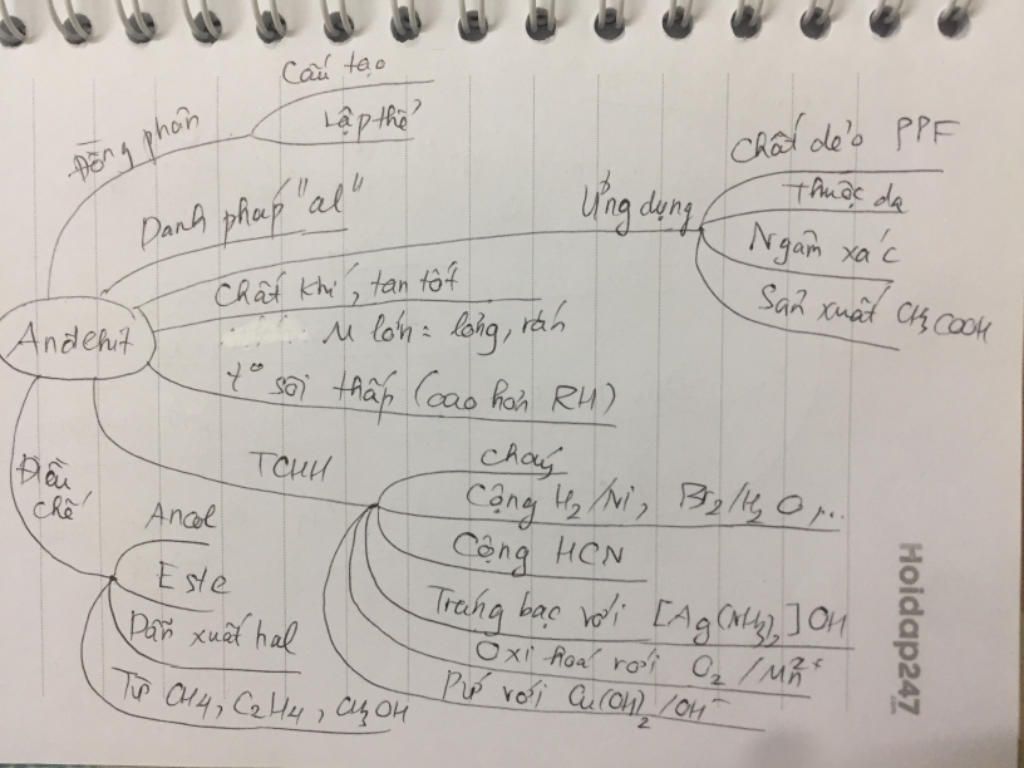 Anđehit
Đồng phân
Cấu tạo
Lập thể
Danh pháp "al"
Ứng dụng
Chất dẻo PPF
Thuộc da
Ngâm xác
Sản xuất CH3COOH
Chất khí, tan tốt
M lớn = lỏng, rắn
t° sôi thấp (cao hơn RH)
TCHH
cháy
Cộng H2/Ni, Br2/H2O,...
Cộng HCN
Tráng bạc với [Ag(NH3)2]OH
Oxi hoá với O2/Mn2+
Pứ với Cu(OH)2/OH-
Điều
chế
Ancol
Este
Dẫn xuất hal
Từ CH4, C2H4, CH3OH
Hoidap247